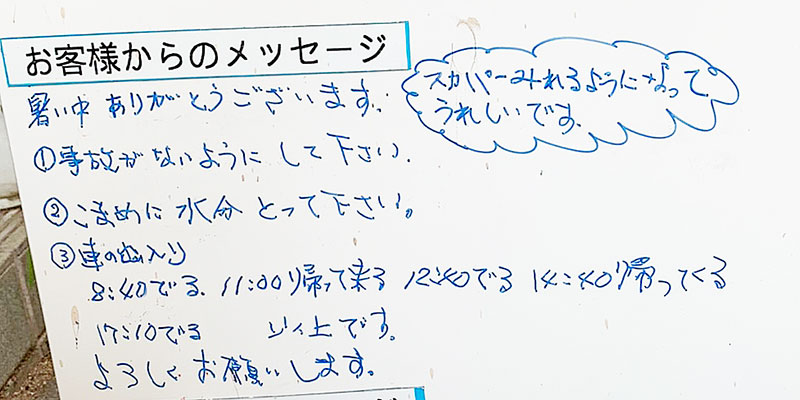 お客様からのメッセージ
暑い中 ありがとうございます。
スカパーみれるようになって
うれしいです。
①事故がないように して下さい。
②こまめに 水分 とって下さい。
③車の出入り
8:40でる、11:00り帰って来る 12:40でる 14:40り帰ってくる
17:10でる 以上です。
よろしく お願いします。